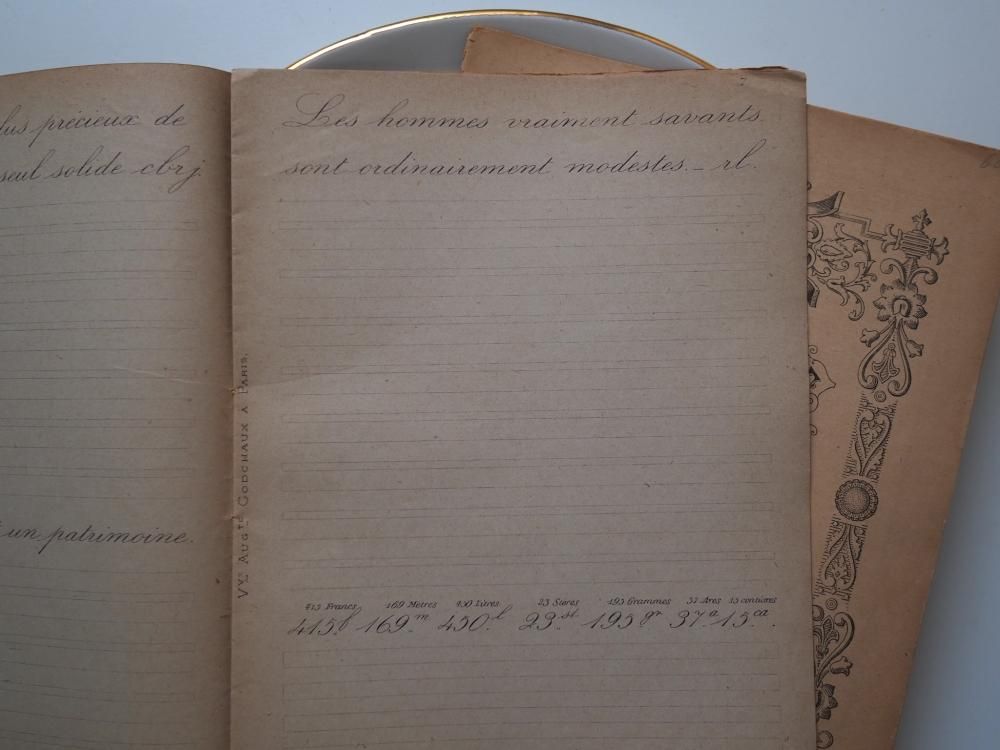 lus précieux de
seul solide cbrj.
un patrimoine.
VVE AUGTE GODCHAUX À PARIS.
Les hommes vraiment savants
sont ordinairement modestes._ rl.
415 Francs 169 Mètres 450 Litres 23 Stères 195 Grammes 37 Ares 15 centiares
415.f 169.m 450.l 23.st. 195 gr 37.a 15.ca.